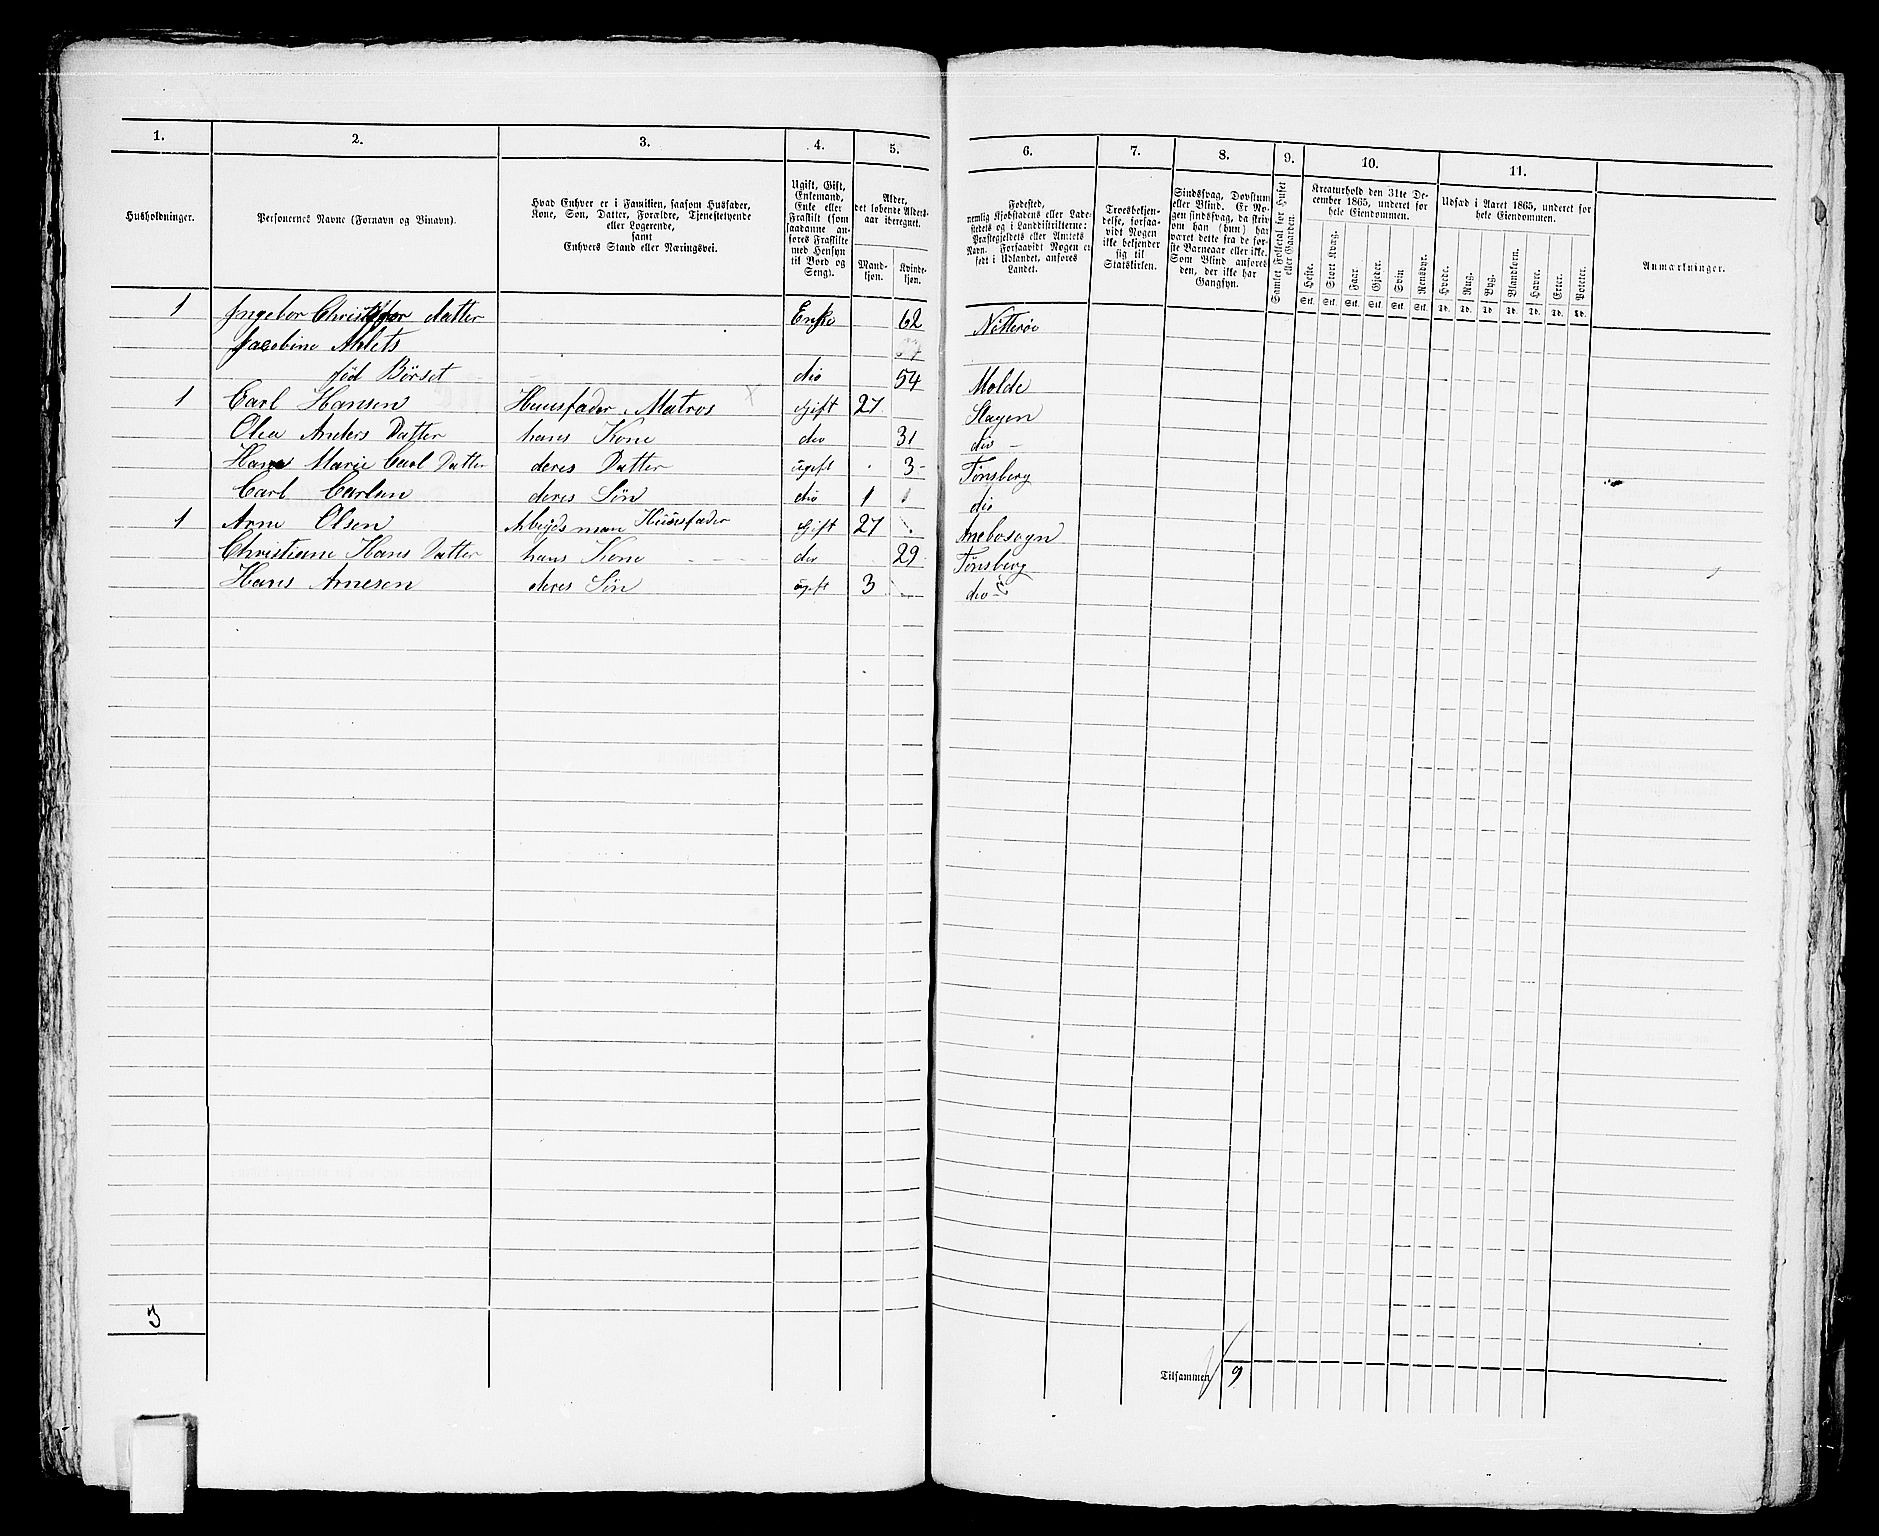 1. 2. 3. 4. 5. 6. 7. 8. 9. 10. 11.
Husholdninger.
Personernes Navne (Fornavn og Binavn).
Hvad Enhver er i Familien, saasom Husfader,
Kone, Søn, Datter, Forældre, Tjenestetyende
eller Logerende,
samt
Enhvers Stand eller Næringsvei.
Ugift, Gift,
Enkemand,
Enke eller
Fraskilt (som
saadanne an-
føres Fraskilte
med Hensyn
til Bord og
Seng).
Alder,
det løbende Alders-
aar iberegnet.
Mand-
kjøn.
Kvinde-
kjøn.
Fødested,
nemlig Kjøbstadens eller Lade-
stedets og i Landdistrikterne:
Præstegjeldets eller Amtets
Navn. Forsaavidt Nogen er
født i Udlandet, anføres
Landet.
Troesbekjen-
delse, forsaa-
vidt Nogen
ikke bekjender
sig til
Statskirken.
Sindssvag, Døvstum
eller Blind. Er No-
gen sindssvag, da skriv
om han (hun) har
været dette fra de før-
ste Barneaar eller ikke.
Som Blind anføres
den, der ikke har
Gangsyn.
Samlet Folketal for Huset
eller Gaarden.
Kreaturhold den 31te De-
cember 1865, underet for
hele Eiendommen.
Heste. Stort Kvæg. Faar. Gjeder. Svin Rensdyr.
Stk. Stk. Stk. Stk. Stk. Stk.
Udsæd i Aaret 1865, underet for
hele Eiendommen.
Hvede. Rug. Byg. Blandkorn. Havre. Erter. Poteter.
Td. Td. Td. Td. Td. Td. Td.
Anmærkninger.
1 Ingebor Christofer Datter Enke 62 Nøtterøe
Jacobine Ahlets
fød Børset dio 54 Molde
1 Carl Hansen Huusfader Matros Gift 27 Slagen
Olea Anders Datter hans Kone dio 31 dio
Hane Marie Carl Datter deres Datter ugift 3 Tønsberg
Carl Carlsen deres Søn dio 1 dio
1 Arne Olsen Arbeids man Huusfader Gift 27 Anebosogn
Christiane Hans Datter hans Kone dio 29 Tønsberg
Hans Arnesen deres Søn ugift 3 dio
3
Tilsammen 9